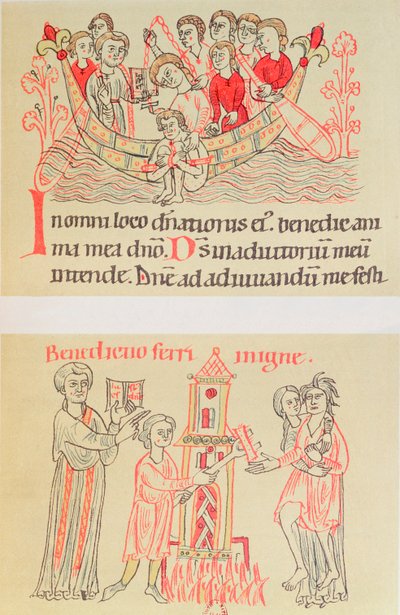 In omni loco dñationis eiꝰ. benedic ani
ma mea dño. Ds̄ in adiutoriū meū
intende. Dñe ad adiuvandū me festi
Benedictio ferri in igne.